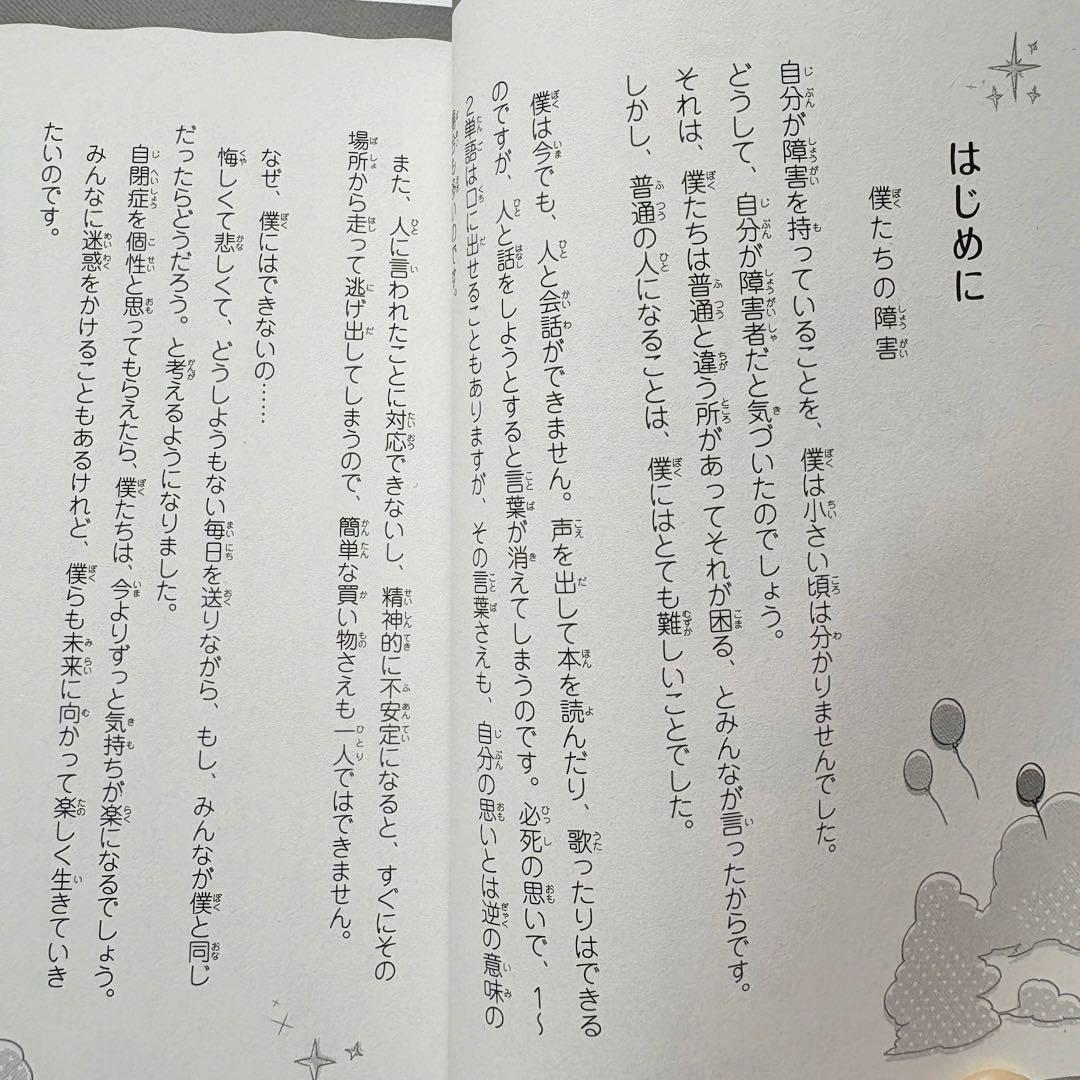 はじめに
僕たちの障害
自分が障害を持っていることを、僕は小さい頃は分かりませんでした。
どうして、自分が障害者だと気づいたのでしょう。
それは、僕たちは普通と違う所があってそれが困る、とみんなが言ったからです。
しかし、普通の人になることは、僕にはとても難しいことでした。
僕は今でも、人と会話ができません。声を出して本を読んだり、歌ったりはできる
のですが、人と話をしようとすると言葉が消えてしまうのです。必死の思いで、1～
2単語は口に出せることもありますが、その言葉さえも、自分の思いとは逆の意味の
いのです。
また、人に言われたことに対応できないし、精神的に不安定になると、すぐにその
場所から走って逃げ出してしまうので、簡単な買い物さえも一人ではできません。
なぜ、僕にはできないの……
悔しくて悲しくて、どうしようもない毎日を送りながら、もし、みんなが僕と同じ
だったらどうだろう。と考えるようになりました。
自閉症を個性と思ってもらえたら、僕たちは、今よりずっと気持ちが楽になるでしょう。
みんなに迷惑をかけることもあるけれど、僕らも未来に向かって楽しく生きていき
たいのです。